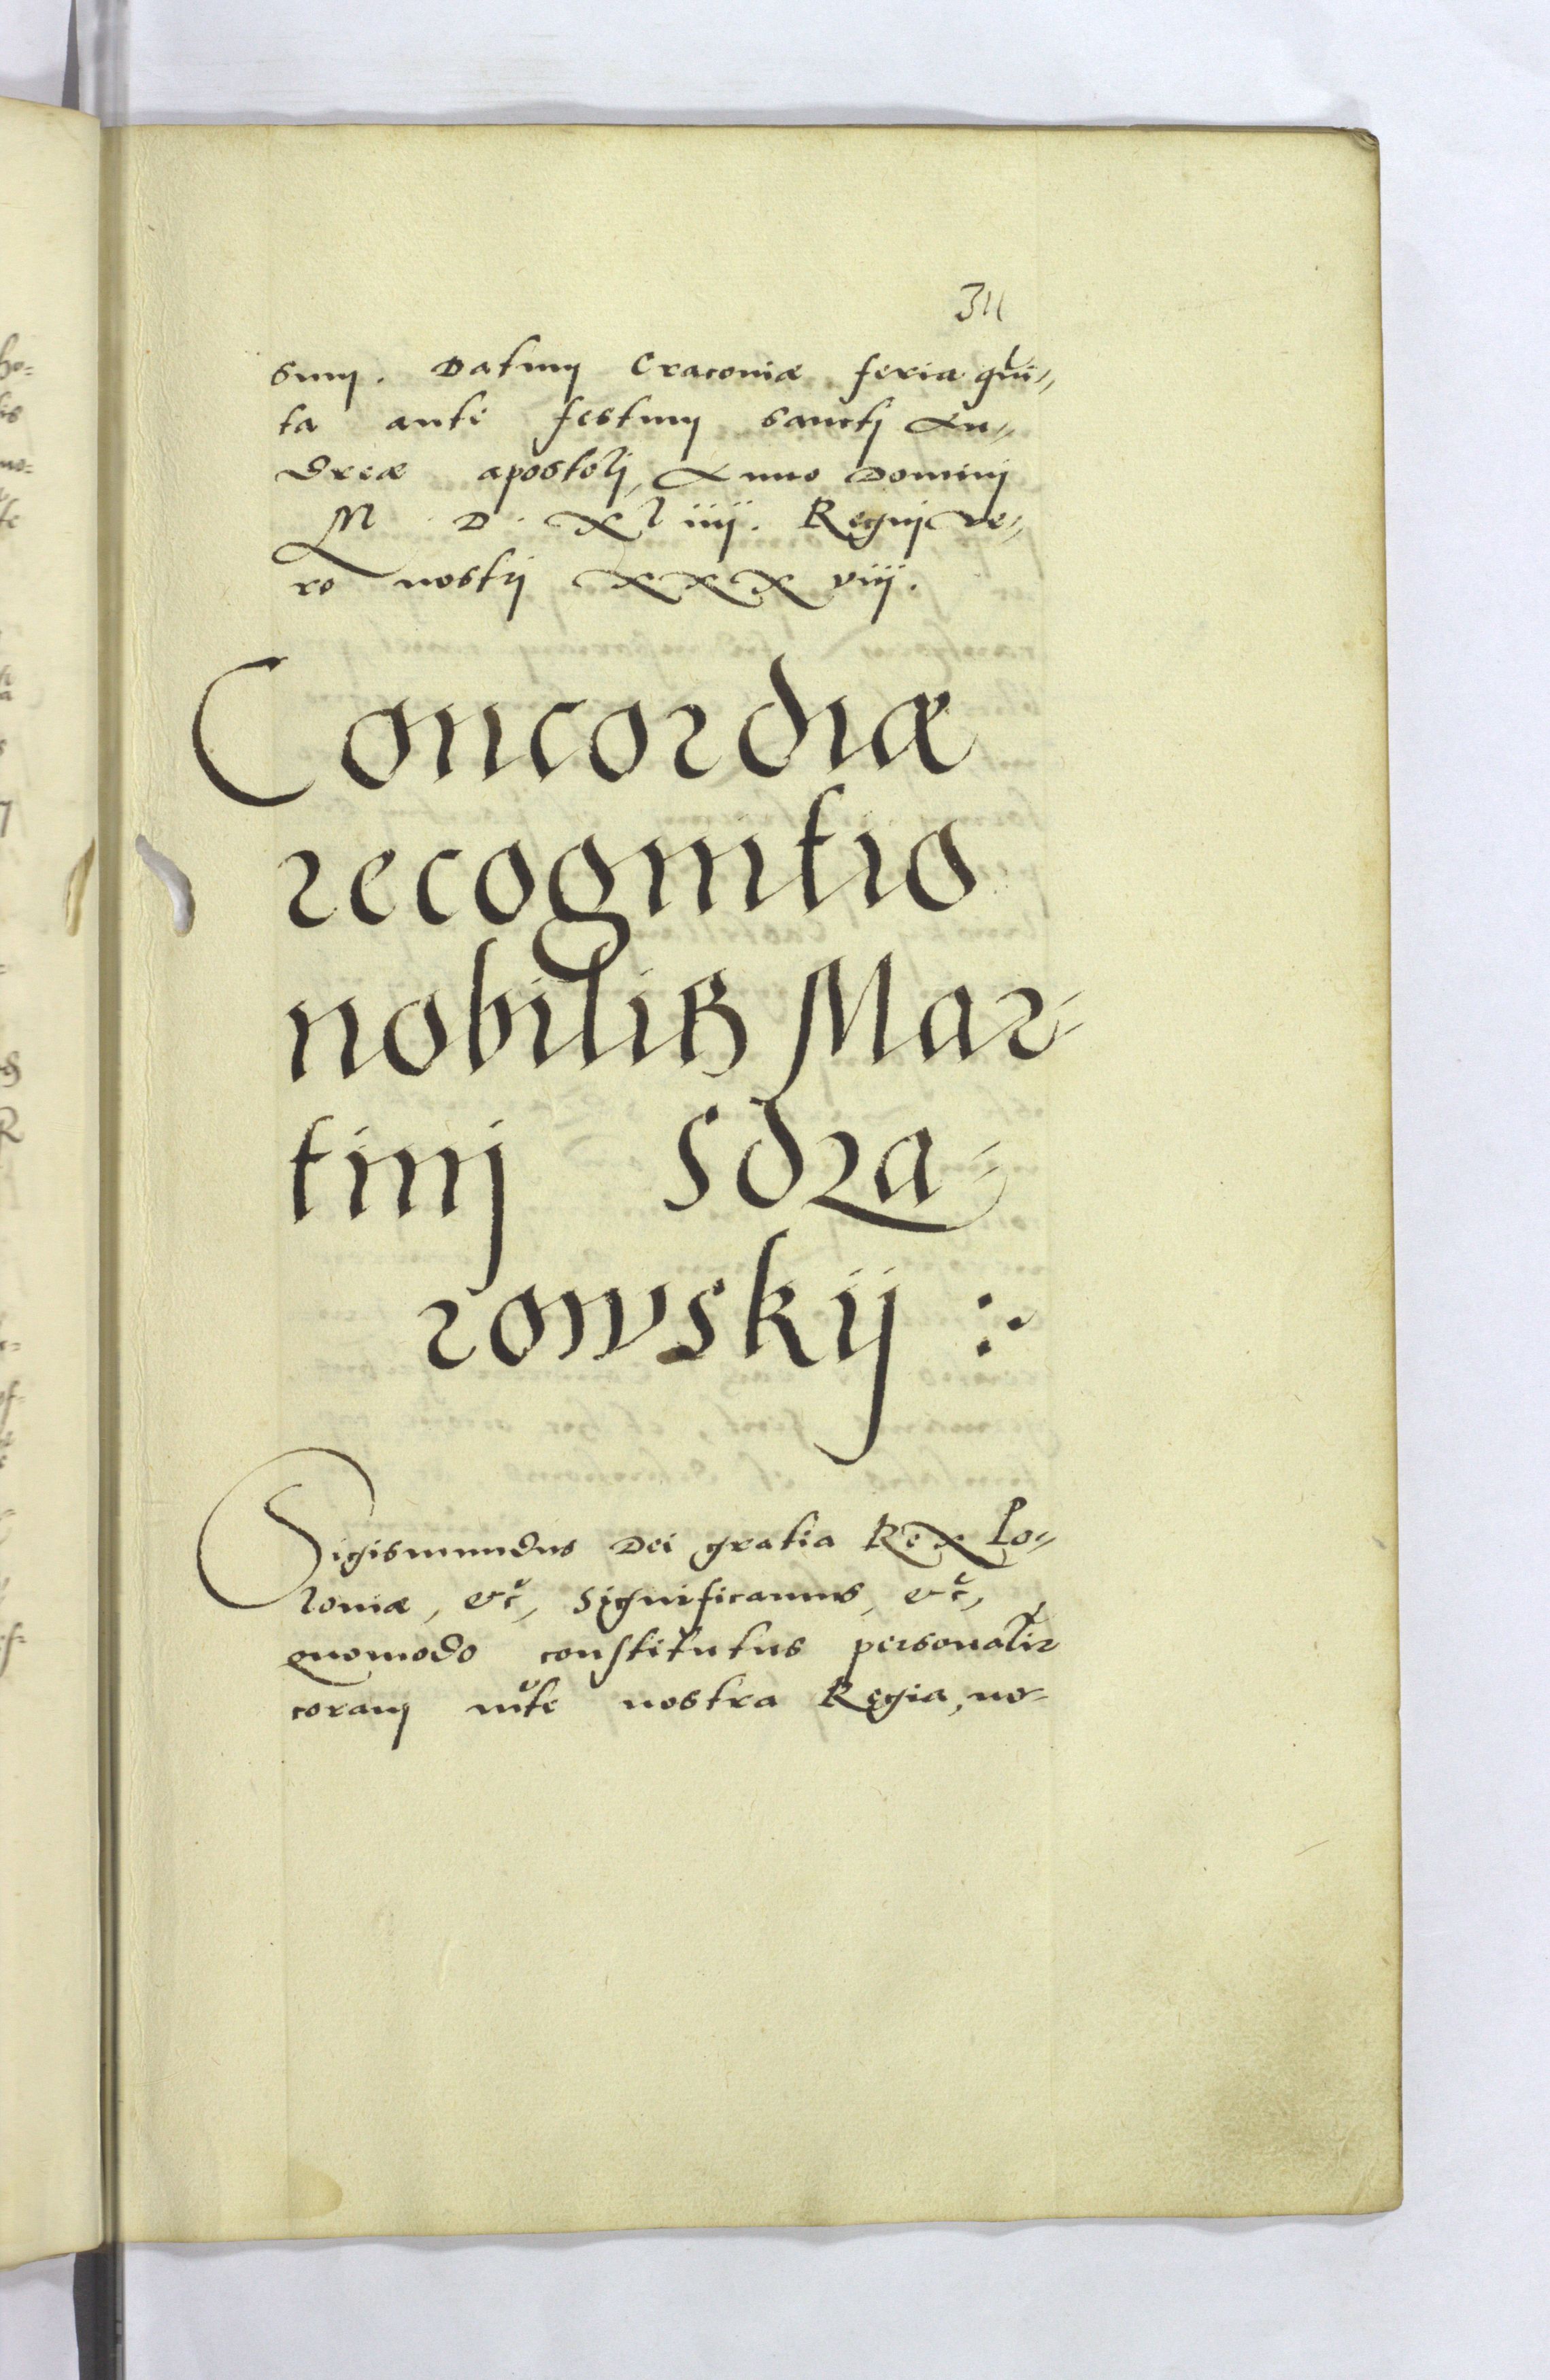 311
sum. Datum Cracoviæ feria qui-
ta ante festum sancti An-
dreæ apostoli, Anno Domini
M D XLiiij. Regni ve-
ro nostri XXXviij.
Concordiæ
recognitio
nobilis Mar-
tini Sdza-
rowskij :
Sigismundus Dei gratia Rex Po-
loniæ, etc, Significamus, etc,
quomodo constitutus personalr
coram mte nostra Regia, no-